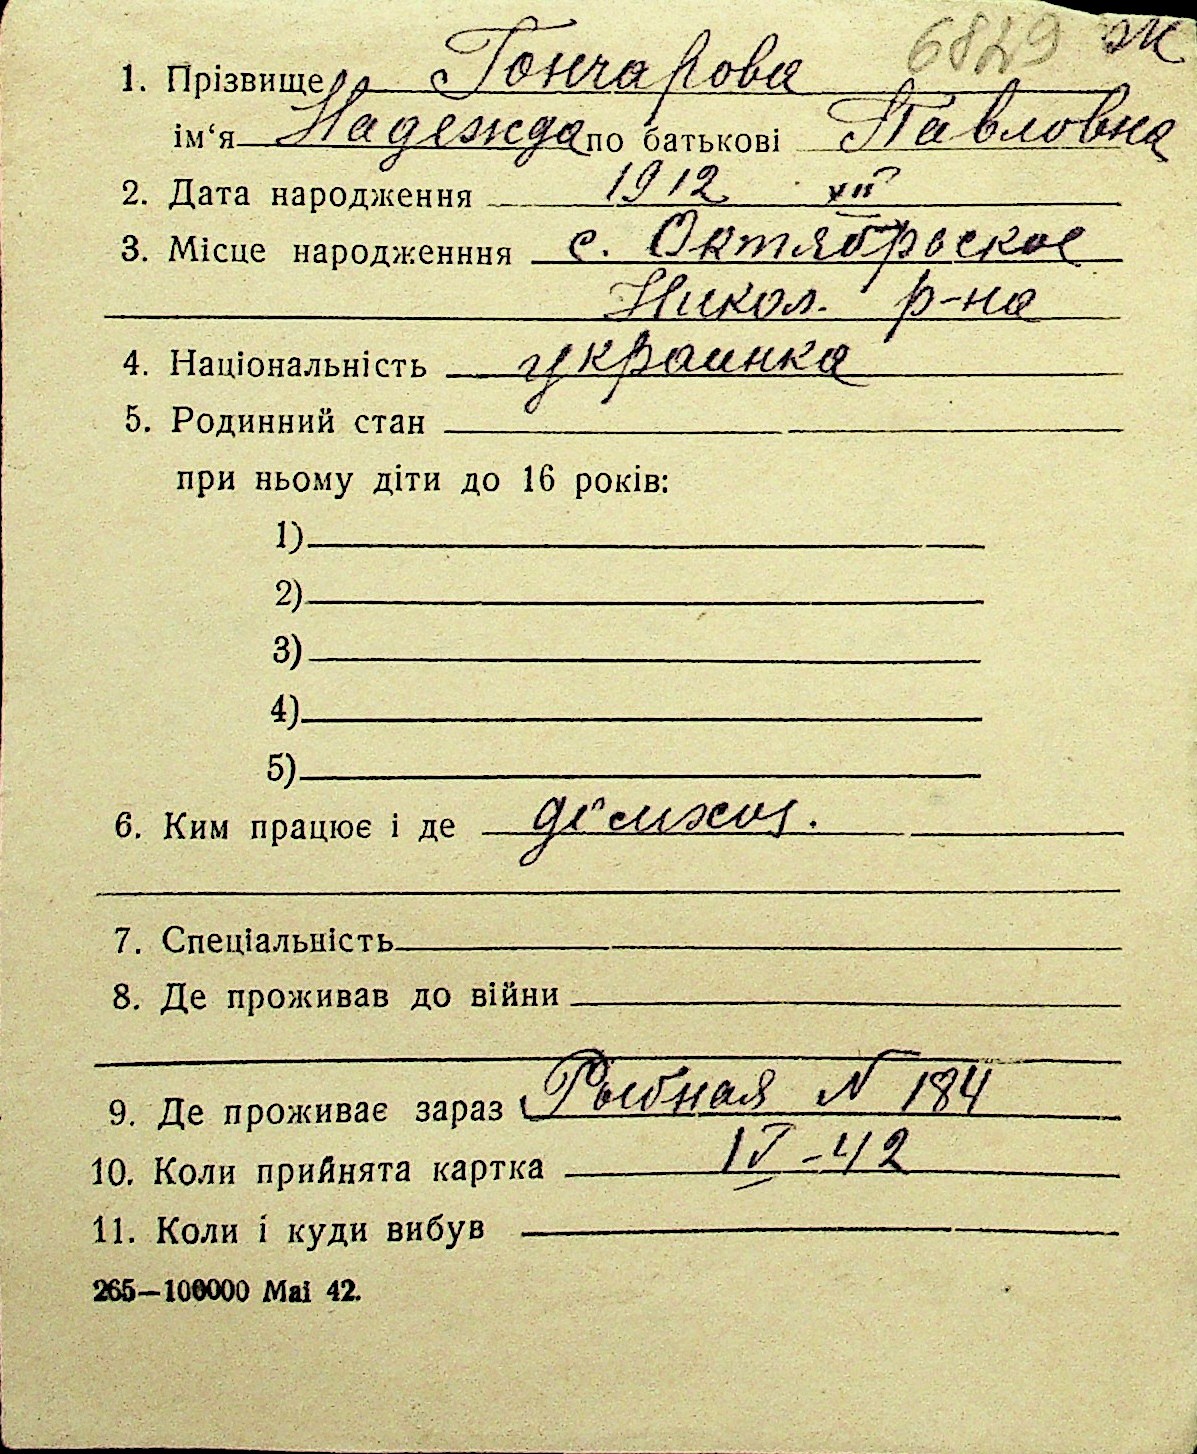 6829 Ж
1. Прізвище Гончарова
ім‘я Надежда по батькові Павловна
2. Дата народження 1912 XII
3. Місце народженння с. Октябрьское
Никол. р-на
4. Національність украинка
5. Родинний стан
при ньому діти до 16 років:
1)
2)
3)
4)
5)
6. Ким працює і де домхоз.
7. Спеціальність
8. Де проживав до війни
9. Де проживає зараз Рыбная N 184
10. Коли прийнята картка IV-42
11. Коли і куди вибув
265—100000 Mai 42.